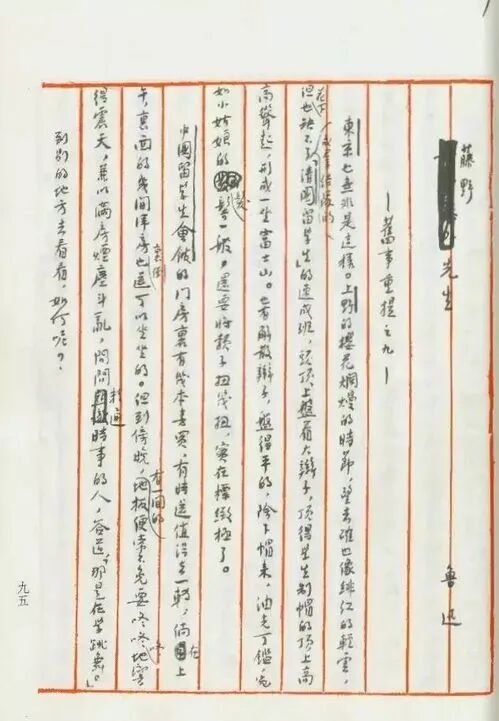 藤野先生
魯迅
—舊事重提之九—
東京也無非是這樣。上野的櫻花爛熳的時節,望去確也像緋紅的輕雲,
但花下也缺不了成羣結隊的「清國留學生」的速成班,頭頂上盤着大辮子,頂得學生制帽的頂上高
高聳起,形成一坐富士山。也有解散辮子,盤得平的,除下帽來,油光可鑑,宛
如小姑娘的髮髻一般,還要將頸子扭幾扭,實在標緻極了。
中國留學生會館的門房裏有幾本書買,有時還值得去一轉,倘在上
午,裏面的幾間洋房裏倒也還可以坐坐的。但到傍晚,有一間的地板便常不免要咚咚咚地響
得震天,兼以滿房煙塵斗亂,問問精通時事的人,答道,「那是在學跳舞。」
到別的地方去看看,如何呢?
九五